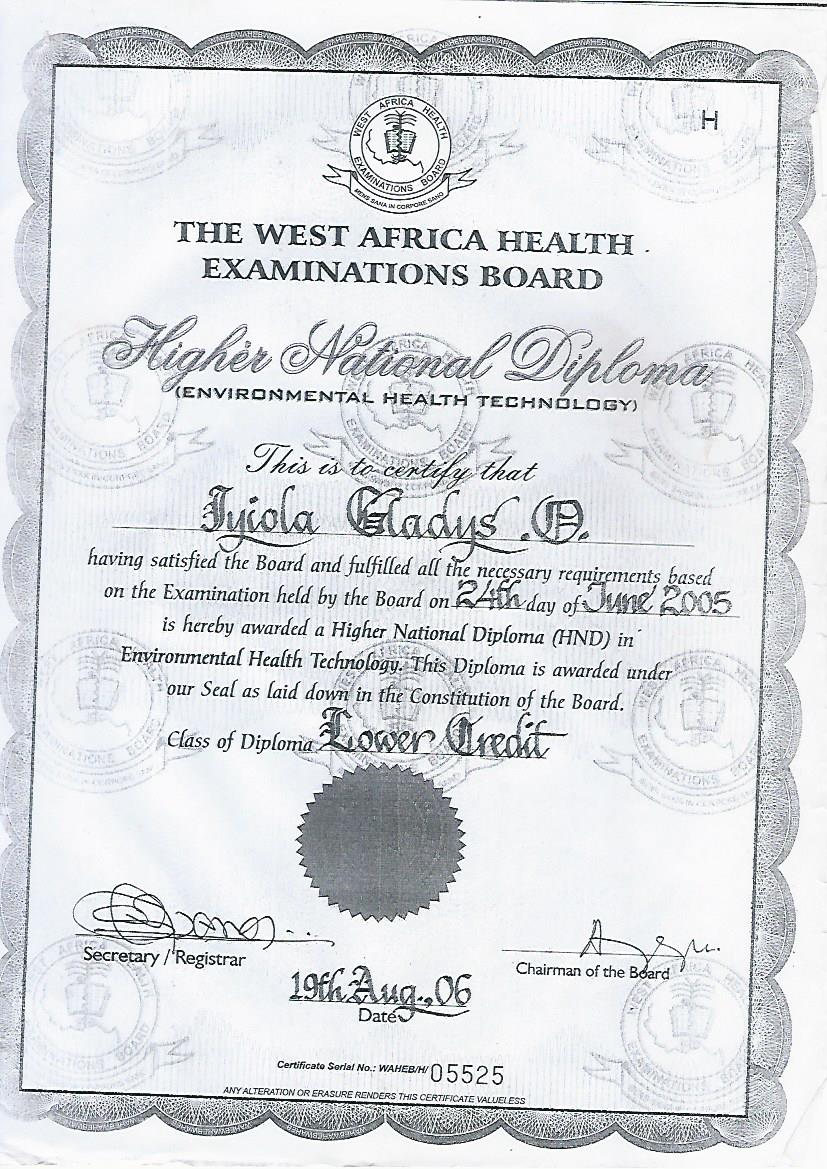 WEST AFRICA HEALTH
EXAMINATIONS BOARD
MENS SANA IN CORPORE SANO
H
THE WEST AFRICA HEALTH
EXAMINATIONS BOARD
Higher National Diploma
(ENVIRONMENTAL HEALTH TECHNOLOGY)
This is to certify that
Iyiola Gladys .O.
having satisfied the Board and fulfilled all the necessary requirements based
on the Examination held by the Board on 24th day of June 2005
is hereby awarded a Higher National Diploma (HND) in
Environmental Health Technology. This Diploma is awarded under
our Seal as laid down in the Constitution of the Board.
Class of Diploma Lower Credit
Secretary / Registrar
Chairman of the Board
19th Aug., 06
Date
Certificate Serial No.: WAHEB/H/ 05525
ANY ALTERATION OR ERASURE RENDERS THIS CERTIFICATE VALUELESS